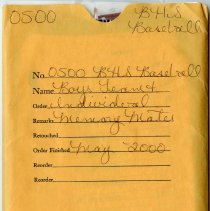 0500
BHS
Baseball
No. 0500 BHS Baseball
Name Boys Team &
Order Individual
Remarks Memory Mates
Retouched
Order Finished May 2000
Reorder
Reorder